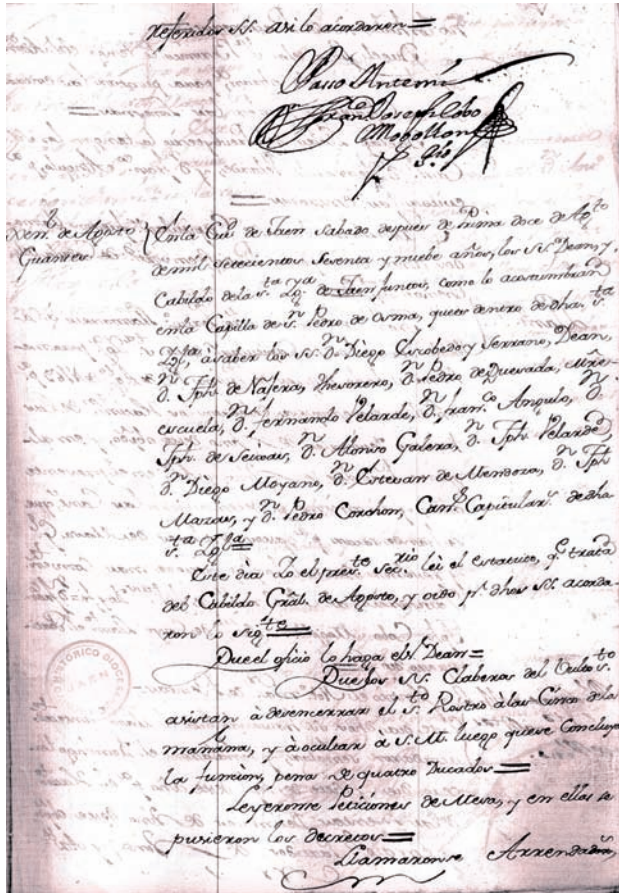 referidos SS. asi lo acordaron =
Passo Antemi
Fran.co Joseph Lobo
Mogollon
S.rio
Gen.l de Agosto
Guantes
Enla Ciu.d de Jaen Sabado despues de Prima doce de Ag.to
de mil setecientos sesenta y nuebe años, los SS. Dean, y
Cabildo dela S.ta Yg.a de Jaen juntos, como lo acostumbran
enla Capilla de S.n Pedro de Osma, que es dentro de dha. S.ta
Ygl.a, à saber los SS. D.n Diego Escobedo y Serrano, Dean,
D.n Jph. de Najera, thesorero, D.n Pedro de Quesada, Mre-
escuela, D.n Fernando Velarde, D.n Fran.co Angulo, D.n
Jph. de Seixas, D.n Alonso Galera, D.n Jph. Velarde,
D.n Diego Moyano, D.n Estevan de Mendoza, D.n Jph
Mazas, y D.n Pedro Corchon, Can.s Capitulares de dha
S.ta Ygl.a =
Este dia Yo el pres.te Sec.rio lei el estatuto, q.e trata
del Cabildo Gral. de Agosto, y oido p.r dhos SS. acorda-
ron lo sig.te =
Que el oficio lo haga el S.r Dean =
Que los SS. Claberos del Culto
asistan à desencerrar el S.to Rostro à las Cinco de la
mañana, y à ocultar à S. M. luego que se Concluya
la funcion, pena de quatro Ducados =
Leyeronse Peticiones de Mesa, y en ellas se
pusieron los decretos =
Llamaronse Arrendador.s
HISTORICO DIOCE